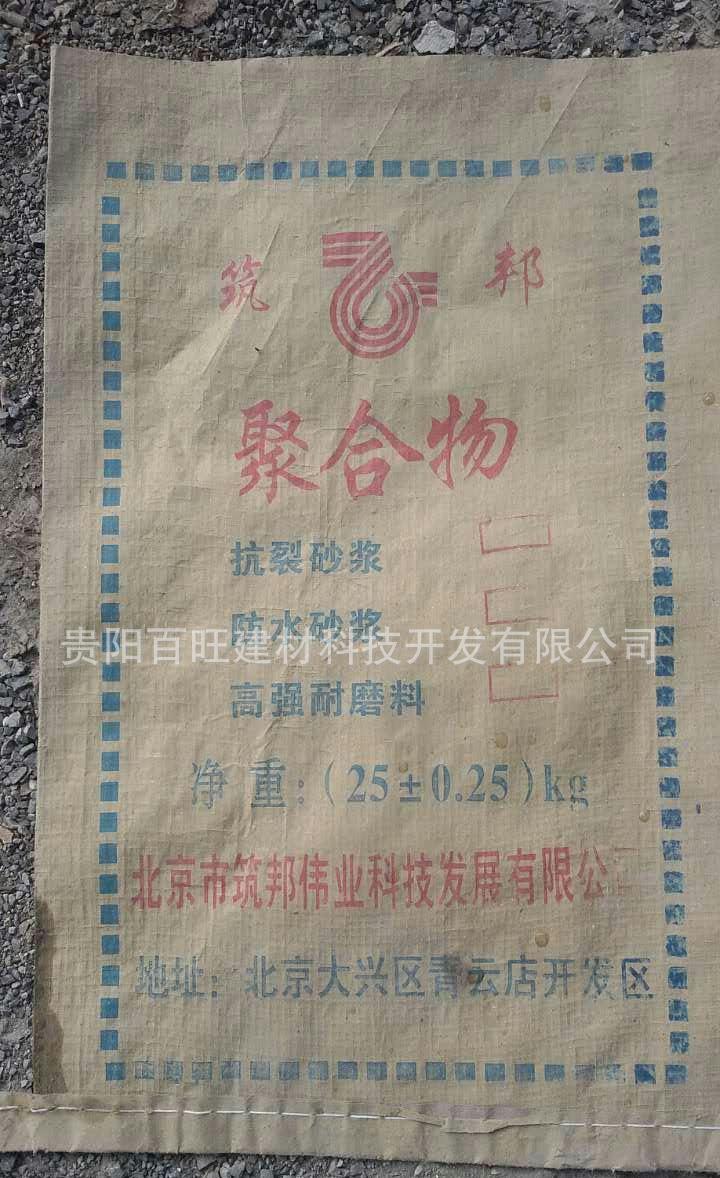 筑 邦
聚合物
抗裂砂浆
防水砂浆
贵阳百旺建材科技开发有限公司
高强耐磨料
净 重：(25±0.25)kg
北京市筑邦伟业科技发展有限公
地址：北京大兴区青云店开发区